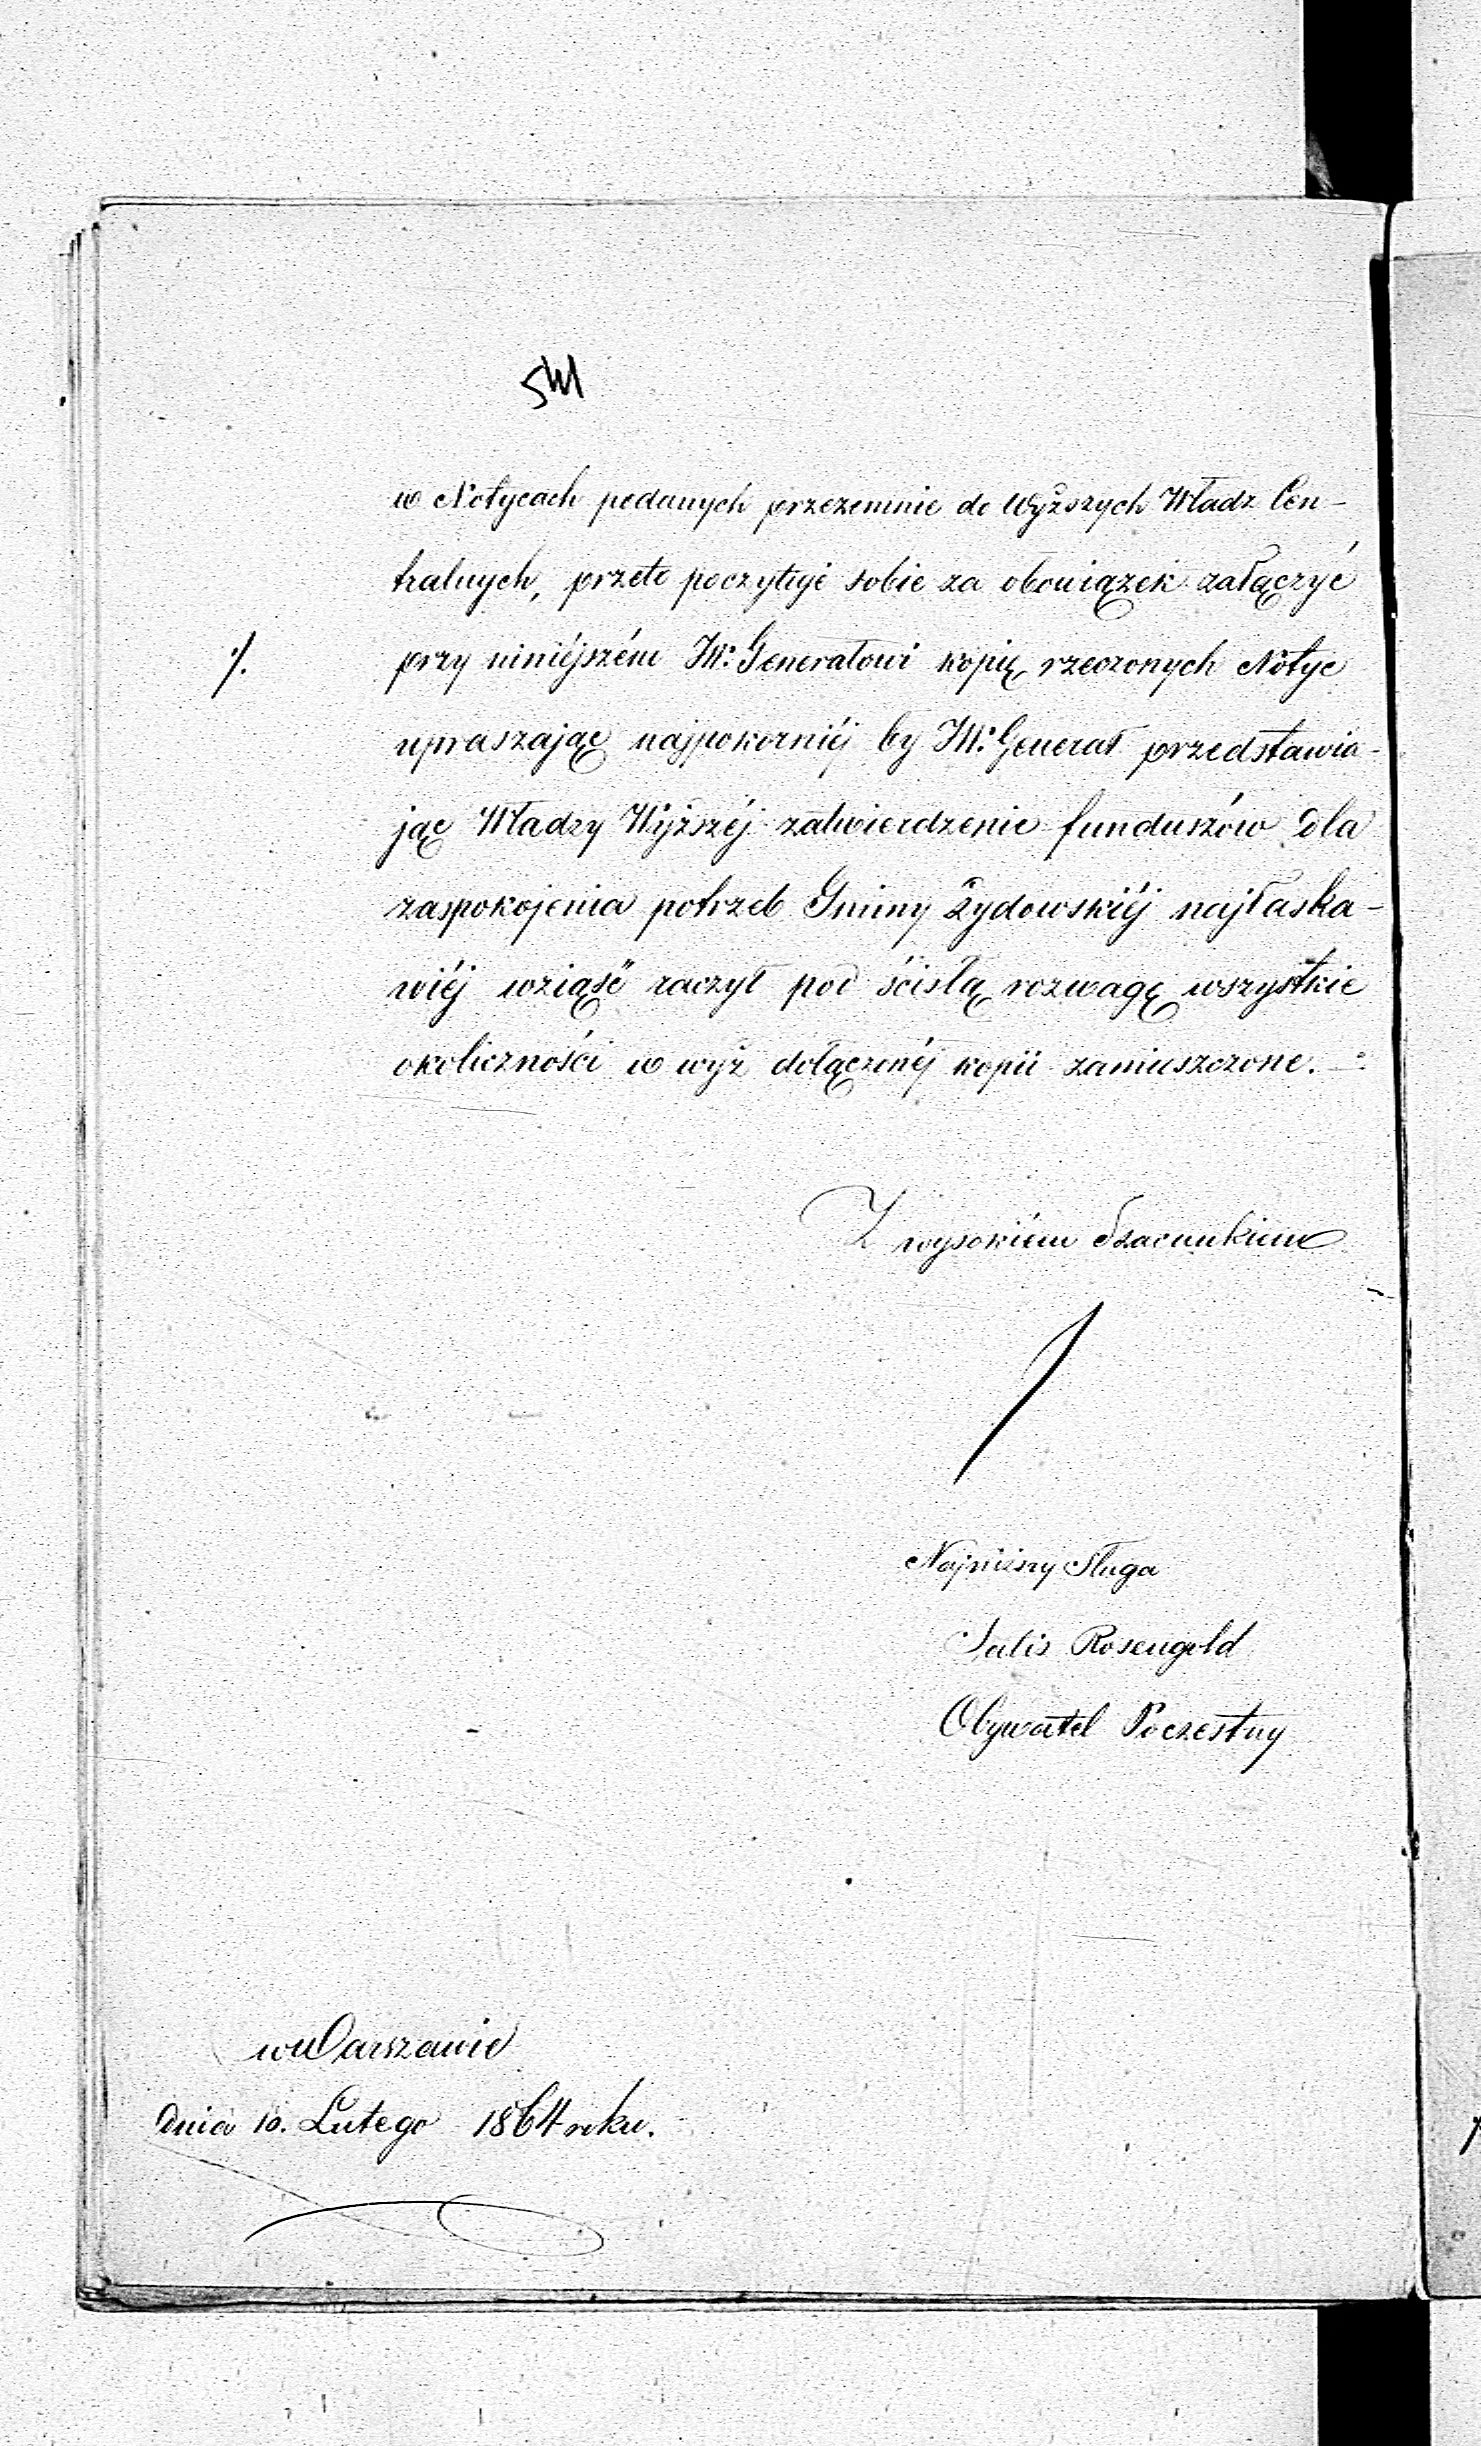 w Notycach podanych przezemnie do Wyższych Władz Cen-
tralnych, przeto poczytuję sobie za obowiązek załączyć
./. przy niniéjszém JW: Generałowi kopię rzeczonych Notyc
upraszając najpokorniéj by JW: Generał przedstawia-
jąc Władzy Wyższéj zatwierdzenie funduszów dla
zaspokojenia potrzeb Gminy Żydowskiéj najłaska-
wiéj wziąść raczył pod ścisłą rozwagę wszystkie
okoliczności w wyż dołączonéj kopii zamieszczone.
Z wysokiém Szacunkiem
Najniższy Sługa
Rosengold
Obywatel Poczestny
w Warszawie
dnia 10. Lutego 1864 roku.